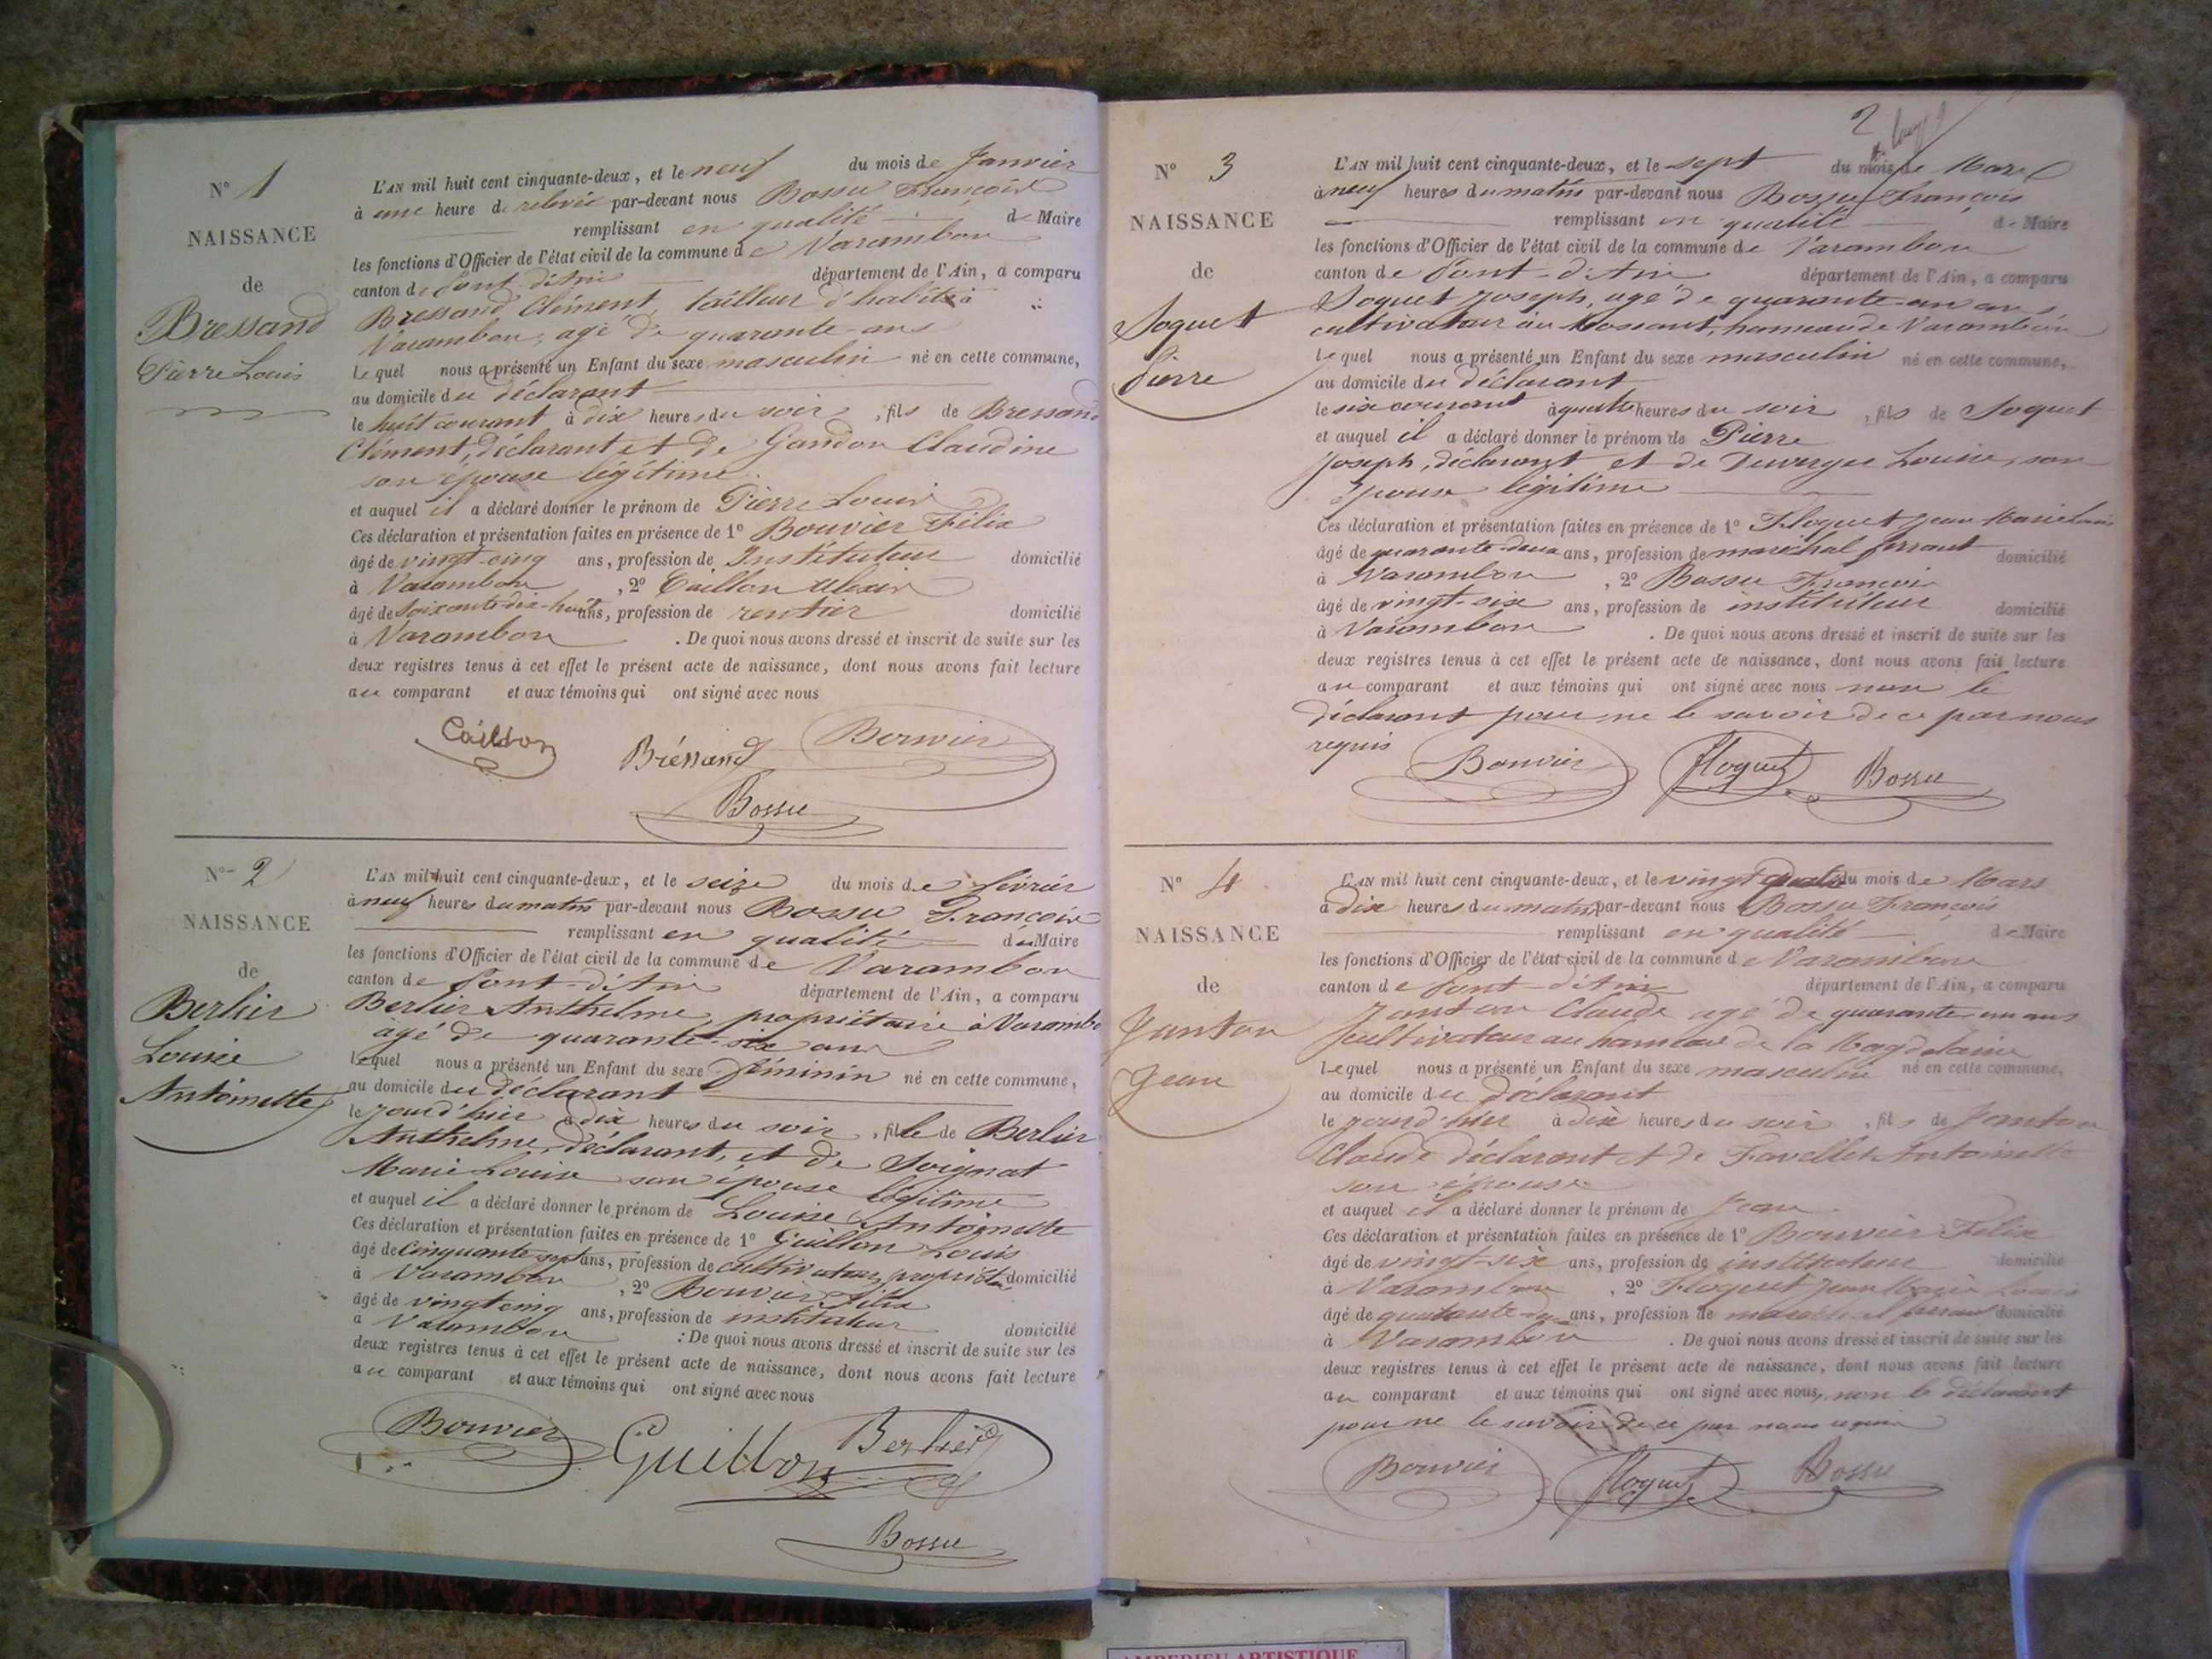 N° 1
NAISSANCE
de
Bressand
Pierre Louis
L'AN mil huit cent cinquante-deux, et le neuf du mois de Janvier
à une heure de relevée par-devant nous Bossu François
remplissant en qualité de Maire
les fonctions d'Officier de l'état civil de la commune de Varambon
canton de Pont-d'Ain département de l'Ain, a comparu
Bressand Clément, tailleur d'habits à
Varambon, agé de quarante ans
Lequel nous a présenté un Enfant du sexe masculin né en cette commune,
au domicile du déclarant
le huit courant à dix heures du soir, fils de Bressand
Clément, déclarant et de Gandon Claudine
son épouse légitime.
et auquel il a déclaré donner le prénom de Pierre Louis
Ces déclaration et présentation faites en présence de 1° Bouvier Félix
âgé de vingt-cinq ans, profession de Instituteur domicilié
à Varambon, 2° Caillon Alexis
âgé de Soixante-dix-huit ans, profession de rentier domicilié
à Varambon. De quoi nous avons dressé et inscrit de suite sur les
deux registres tenus à cet effet le présent acte de naissance, dont nous avons fait lecture
au comparant et aux témoins qui ont signé avec nous
Caillon Bréssand Bouvier
Bossu
N° 2
NAISSANCE
de
Berlier
Louise
Antoinette
L'AN mil huit cent cinquante-deux, et le seize du mois de février
à neuf heures du matin par-devant nous Bossu François
remplissant en qualité de Maire
les fonctions d'Officier de l'état civil de la commune de Varambon
canton de Pont-d'Ain département de l'Ain, a comparu
Berlier Anthelme, propriétaire à Varambo
agé de quarante-six ans
Lequel nous a présenté un Enfant du sexe féminin né en cette commune,
au domicile du déclarant
le jourd'hier à dix heures du soir, fille de Berlier
Anthelme, déclarant, et de Soignat
Marie Louise son épouse légitime
et auquel il a déclaré donner le prénom de Louise Antoinette
Ces déclaration et présentation faites en présence de 1° Guillon Louis
âgé de Cinquante sept ans, profession de cultivateur, propriétaire domicilié
à Varambon, 2° Bouvier Félix
âgé de vingt cinq ans, profession de instituteur domicilié
à Varambon : De quoi nous avons dressé et inscrit de suite sur les
deux registres tenus à cet effet le présent acte de naissance, dont nous avons fait lecture
au comparant et aux témoins qui ont signé avec nous
Bouvier Guillon Berlier
Bossu
2
N° 3
NAISSANCE
de
Soquet
Pierre
L'AN mil huit cent cinquante-deux, et le sept du mois de Mars
à neuf heures du matin par-devant nous Bossu François
remplissant en qualité de Maire
les fonctions d'Officier de l'état civil de la commune de Varambon
canton de Pont-d'Ain département de l'Ain, a comparu
Soquet Joseph, agé de quarante-un ans,
cultivateur au Mossant, hameau de Varambon
Lequel nous a présenté un Enfant du sexe masculin né en cette commune,
au domicile du déclarant
le six courant à quatre heures du soir, fils de Soquet
et auquel il a déclaré donner le prénom de Pierre
Joseph, déclarant et de Duverger Louise, son
épouse légitime
Ces déclaration et présentation faites en présence de 1° Floquet Jean Marie Louis
âgé de quarante-deux ans, profession de maréchal ferrant domicilié
à Varambon, 2° Bossu François
âgé de vingt-six ans, profession de instituteur domicilié
à Varambon. De quoi nous avons dressé et inscrit de suite sur les
deux registres tenus à cet effet le présent acte de naissance, dont nous avons fait lecture
au comparant et aux témoins qui ont signé avec nous non le
déclarant pour ne le savoir de ce par nous
requis
Bouvier Floquet Bossu
N° 4
NAISSANCE
de
Janton
Jean
L'AN mil huit cent cinquante-deux, et le vingt quatre du mois de Mars
à dix heures du matin par-devant nous Bossu François
remplissant en qualité de Maire
les fonctions d'Officier de l'état civil de la commune de Varambon
canton de Pont-d'Ain département de l'Ain, a comparu
Janton Claude agé de quarante un ans
cultivateur au hameau de la Magdelaine
Lequel nous a présenté un Enfant du sexe masculin né en cette commune,
au domicile du déclarant
le jourd'hier à dix heures du soir, fils de Janton
Claude déclarant et de Favellet Antoinette
son épouse
et auquel il a déclaré donner le prénom de Jean
Ces déclaration et présentation faites en présence de 1° Bouvier Félix
âgé de vingt-six ans, profession de instituteur domicilié
à Varambon, 2° Floquet Jean Marie Louis
âgé de quarante-deux ans, profession de maréchal ferrant domicilié
à Varambon. De quoi nous avons dressé et inscrit de suite sur les
deux registres tenus à cet effet le présent acte de naissance, dont nous avons fait lecture
au comparant et aux témoins qui ont signé avec nous, non le déclarant
pour ne le savoir de ce par nous requis
Bouvier Floquet Bossu
AMBERIEU ARTISTIQUE